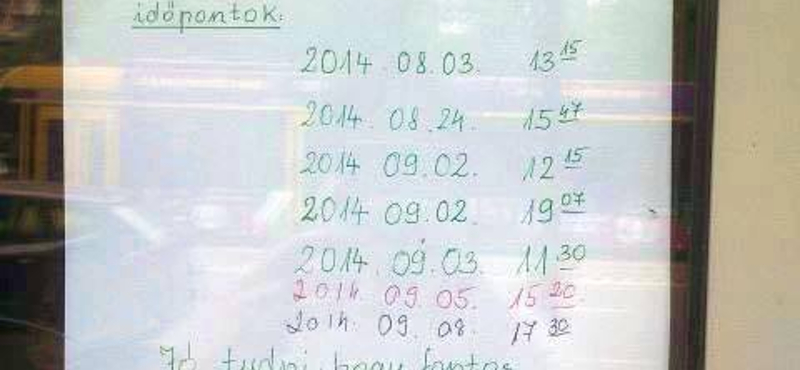 időpontok:
2014. 08.03. 13 15
2014. 08.24. 15 47
2014 09.02. 12 15
2014 09.02. 19 07
2014. 09.03. 11 30
2014. 09 05. 15 20
2014. 09. 08. 17 30
Jó tudni hogy fontos